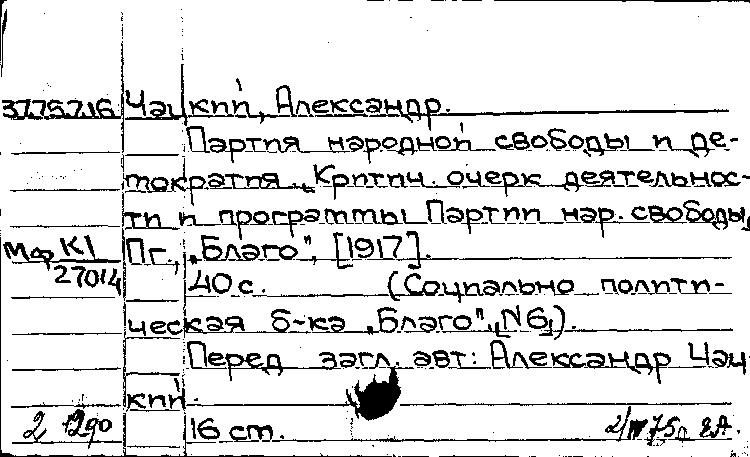 3775716 Чацкий, Александр.
Партия народной свободы и де-
мократия. Критич. очерк деятельнос-
ти и программы Партии нар. свободы,
Мф К1 Пг., „Благо", [1917].
27014 40 с. (Социально полити-
ческая б-ка „Благо", №6).
Перед загл. авт: Александр Чац
кий.
2 1290 16 cm. 2/IV 75г. ЕА.